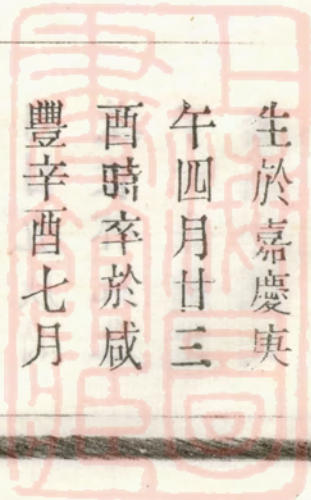 生於嘉慶庚
午四月廿三
酉時卒於咸
豐辛酉七月